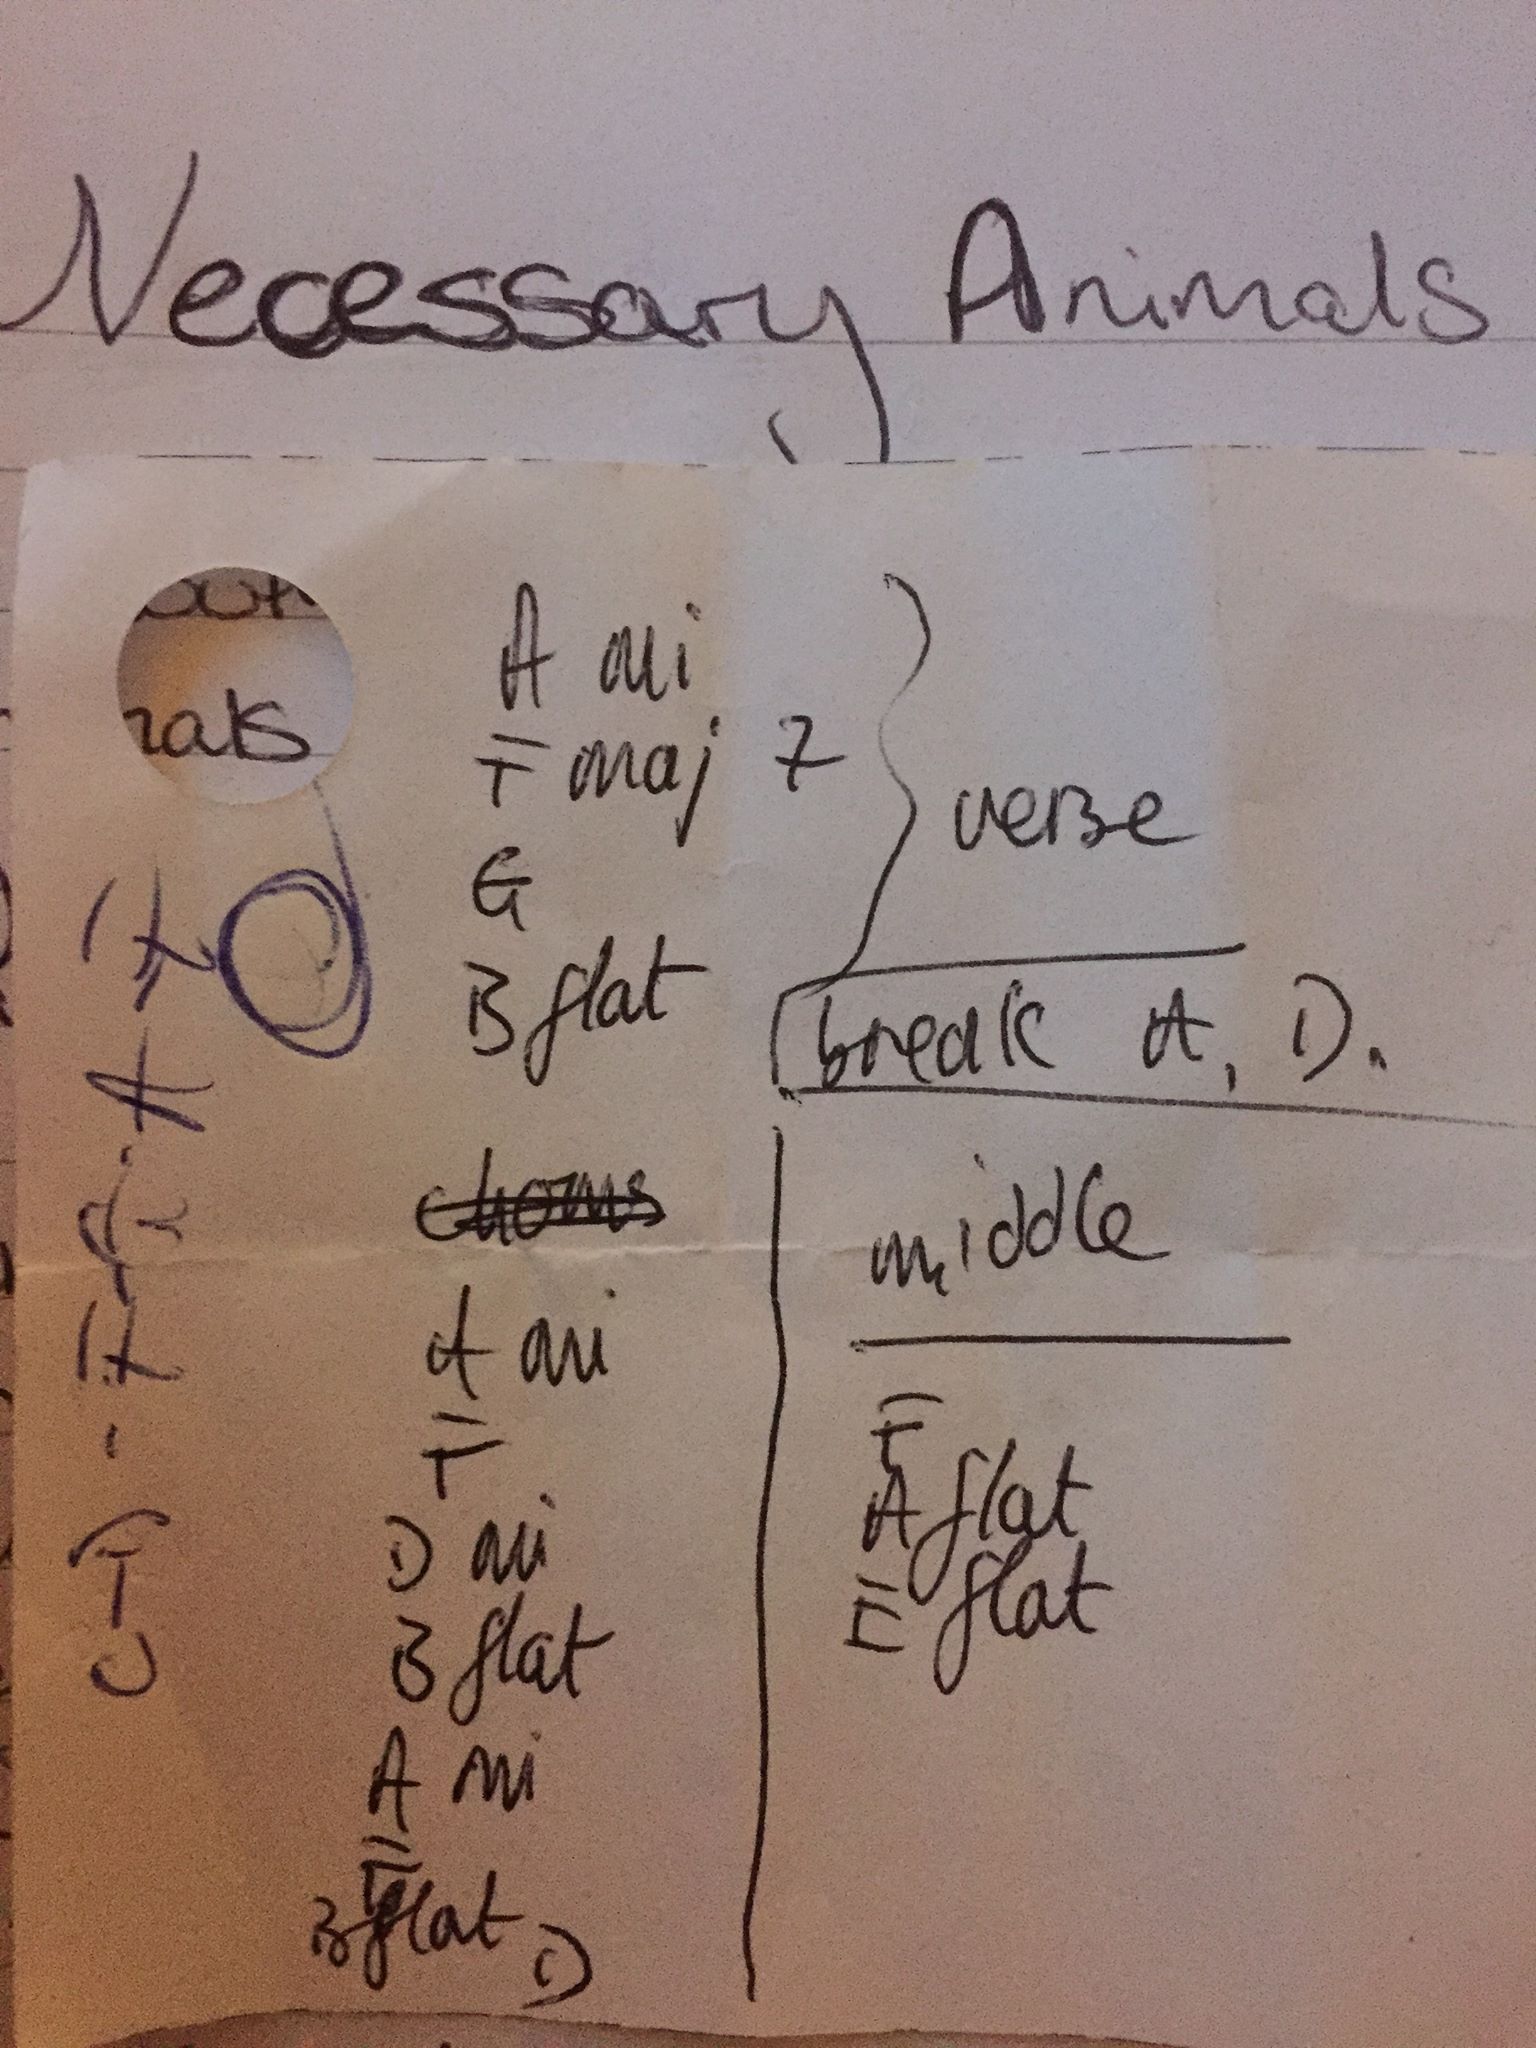 Necessary Animals
A mi
F maj 7
G
B flat
verse
break A, D.
chorus
A mi
F
D mi
B flat
A mi
F
B flat D
middle
F
A flat
E flat